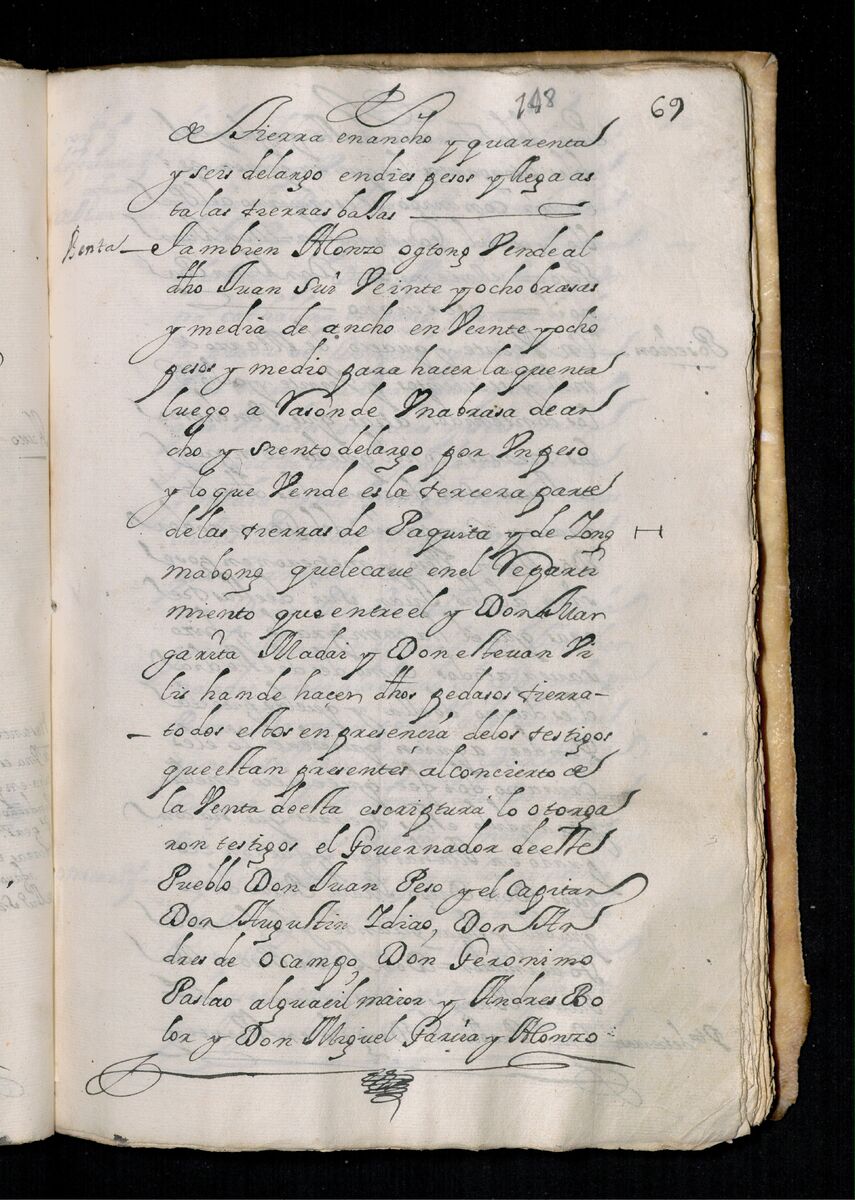 148
69
de Tierra en ancho y quarenta
y seis delargo endies pesos y llega as
ta las tierras bajas
Benta
Tambien Alonzo ogtong Vende al
dho Juan Sui Veinte y ocho brasas
y media de ancho en Veinte y ocho
pesos y medio para hacer la quenta
luego a Rason de Vna brasa de an
cho y siento delargo por Vn peso
y lo que Vende es la tercera parte
de las tierras de Paquita y de Long
mabong quelecave en el Reparti
miento que entre el y Don Mar
garita Madai y Don estevan Vi
lis hande hacer dhos pedasos tierra
todos estos en presencia delos testigos
que estan presentes al concierto de
la Venta de esta escriptura lo otorga
ron testigos el Governador de este
Pueblo Don Juan Peso y el Capitan
Don Augustin Idiao, Don An
dres de Ocampo, Don Geronimo
Paslao alguacil maior y Andres Bo
lor y Don Miguel Garcia y Alonzo